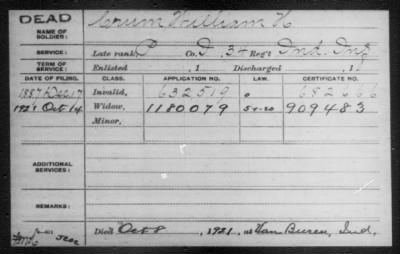 DEAD
NAME OF SOLDIER: Crum William H
SERVICE: Late rank P Co. D. 34 Reg't Ind. Inf
TERM OF SERVICE: Enlisted , 1 Discharged , 1
DATE OF FILING. CLASS. APPLICATION NO. LAW. CERTIFICATE NO.
1887 Dec. 17 Invalid, 632519 682666
1921 Oct 14 Widow, 1180079 5-1-20 909483
Minor,
ADDITIONAL SERVICES:
REMARKS:
Died Oct 8, 1921, at Van Buren, Ind.